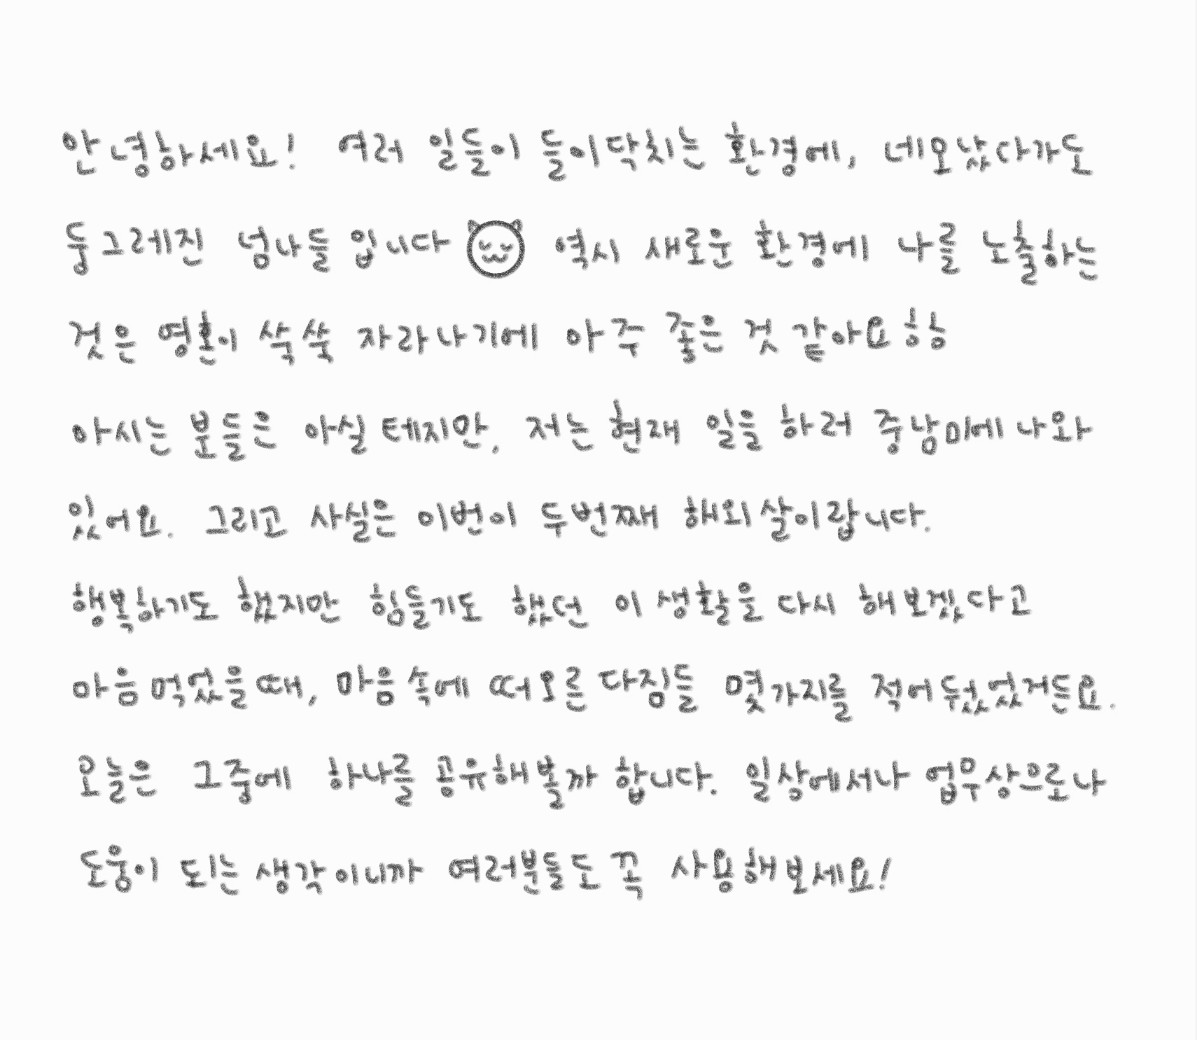 안녕하세요! 여러 일들이 들이닥치는 환경에, 네모났다가도
둥그레진 넘나들 입니다 역시 새로운 환경에 나를 노출하는
것은 영혼이 쑥쑥 자라나기에 아주 좋은 것 같아요 하핳
아시는 분들은 아실 테지만, 저는 현재 일을 하러 중남미에 나와
있어요. 그리고 사실은 이번이 두번째 해외살이랍니다.
행복하기도 했지만 힘들기도 했던 이 생활을 다시 해보겠다고
마음먹었을때, 마음속에 떠오른 다짐들 몇가지를 적어뒀었거든요.
오늘은 그중에 하나를 공유해볼까 합니다. 일상에서나 업무상으로나
도움이 되는 생각이니까 여러분들도 꼭 사용해보세요!